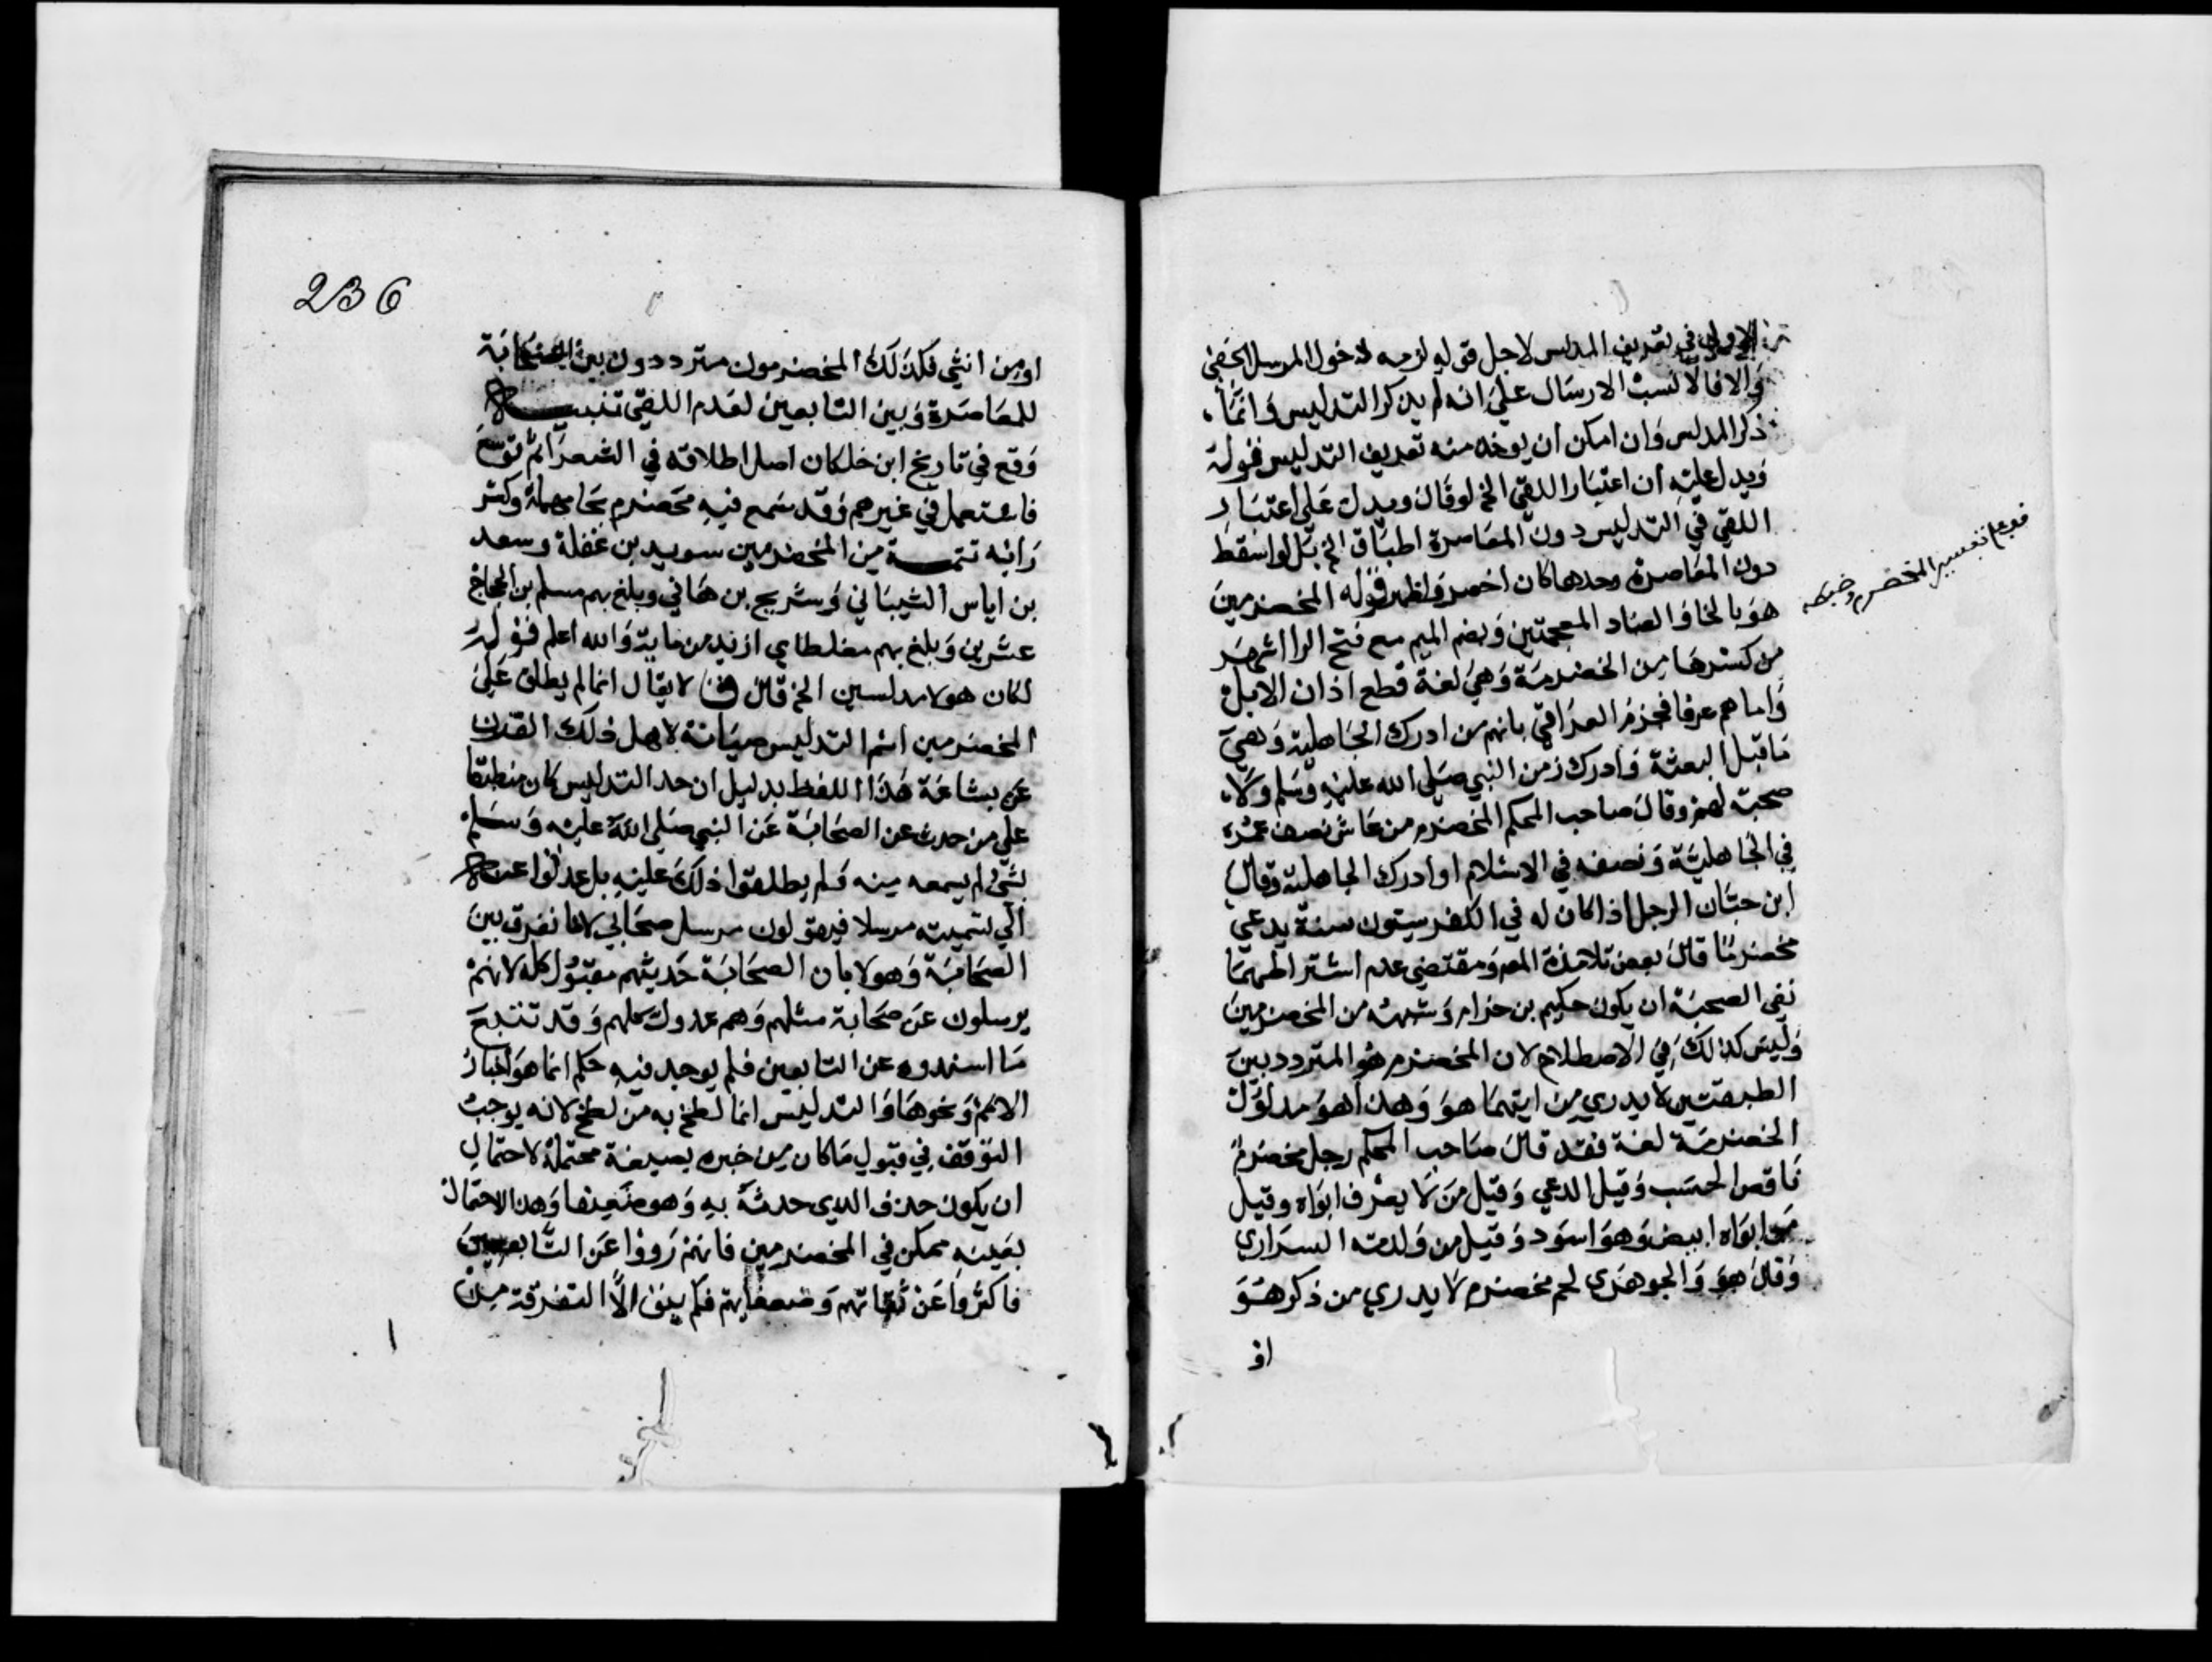 الاولى في تعريف المدلس لاجل قوله لزمه دخول المرسل الخفي
والا فالانسب الارسال على انه لم يذكر التدليس وانما
ذكر المدلس وان امكن ان يوخذ منه تعريف التدليس فقوله
ويدل عليه ان اعتبار اللقي الخ لو قال ويدل على اعتبار
اللقي في التدليس دون المعاصرة اطباق الخ بل لو اسقط
دون المعاصرة وحدها كان اخصر واظهر قوله المخضرمين
هو بالخا والضاد المعجمتين وبضم الميم مع فتح الرا اشهر
من كسرها من الخضرمة وهي لغة قطع اذان الابل
واما هم عرفا فجزم العراقي بانهم من ادرك الجاهلية وهي
ما قبل البعثة وادرك زمن النبي صلى الله عليه وسلم ولا
صحبة لهم وقال صاحب المحكم المخضرم من عاش نصف عمره
في الجاهلية ونصفه في الاسلام او ادرك الجاهلية وقال
ابن حبان الرجل اذا كان له في الكفر ستون سنة يدعى
مخضرما قال بعض تلامذة المص ومقتضى عدم اشتراطهما
نفي الصحبة ان يكون حكيم بن حزام وشبهه من المخضرمين
وليس كذلك في الاصطلاح لان المخضرم هو المتردد بين
الطبقتين لا يدري من ايتهما هو وهذا هو مدلول
الخضرمة لغة فقد قال صاحب المحكم رجل مخضرم
ناقص الحسب وقيل الدعي وقيل من لا يعرف ابواه وقيل
من ابواه ابيض وهو اسود وقيل من ولدته السراري
وقال هو والجوهري لحم مخضرم لا يدري من ذكر هو
او
قوي علي تفسير المخضرم وضبطه
236
او من انثى فكذلك المخضرمون مترددون بين الصحابة
للمعاصرة وبين التابعين لعدم اللقي تنبيه
وقع في تاريخ ابن خلكان اصل اطلاقه في الشعراثم توسع
فاستعمل في غيرهم وقد سمع فيه محضرم بحا مهملة وكسر
رائه تتمة من المخضرمين سويد بن غفلة وسعد
بن اياس الشيباني وشريح بن هاني وبلغ بهم مسلم بن الحجاج
عشرين وبلغ بهم مغلطاي ازيد من ماية والله اعلم قوله
لكان هولا مدلسين الخ قال ق لا يقال انما لم يطلق على
المخضرمين اسم التدليس صيانة لاهل ذلك القدر
عن بشاعة هذا اللفظ بدليل ان حد التدليس كان منطبقا
على من حدث عن الصحابة عن النبي صلى الله عليه وسلم
بشي لم يسمعه منه فلم يطلقوا ذلك عليه بل عدلوا عنه
الي تسميته مرسلا فيقولون مرسل صحابي لانا نفرق بين
الصحابة وهولا بان الصحابة حديثهم مقبول كله لانهم
يرسلون عن صحابة مثلهم وهم عدول كلهم وقد تتبع
ما اسندوه عن التابعين فلم يوجد فيه حكم انما هو اخبار
الامم ونحوها والتدليس انما لطخ به من لطخ لانه يوجب
التوقف في قبول ما كان من خبره بصيغة محتملة لاحتمال
ان يكون حذف الذي حدثه به وهو ضعيف وهذا الاحتمال
بعينه ممكن في المخضرمين فانهم رووا عن التابعين
فاكثروا عن ثقاتهم وضعفايهم فلم يبق الا التفرقة من
ا